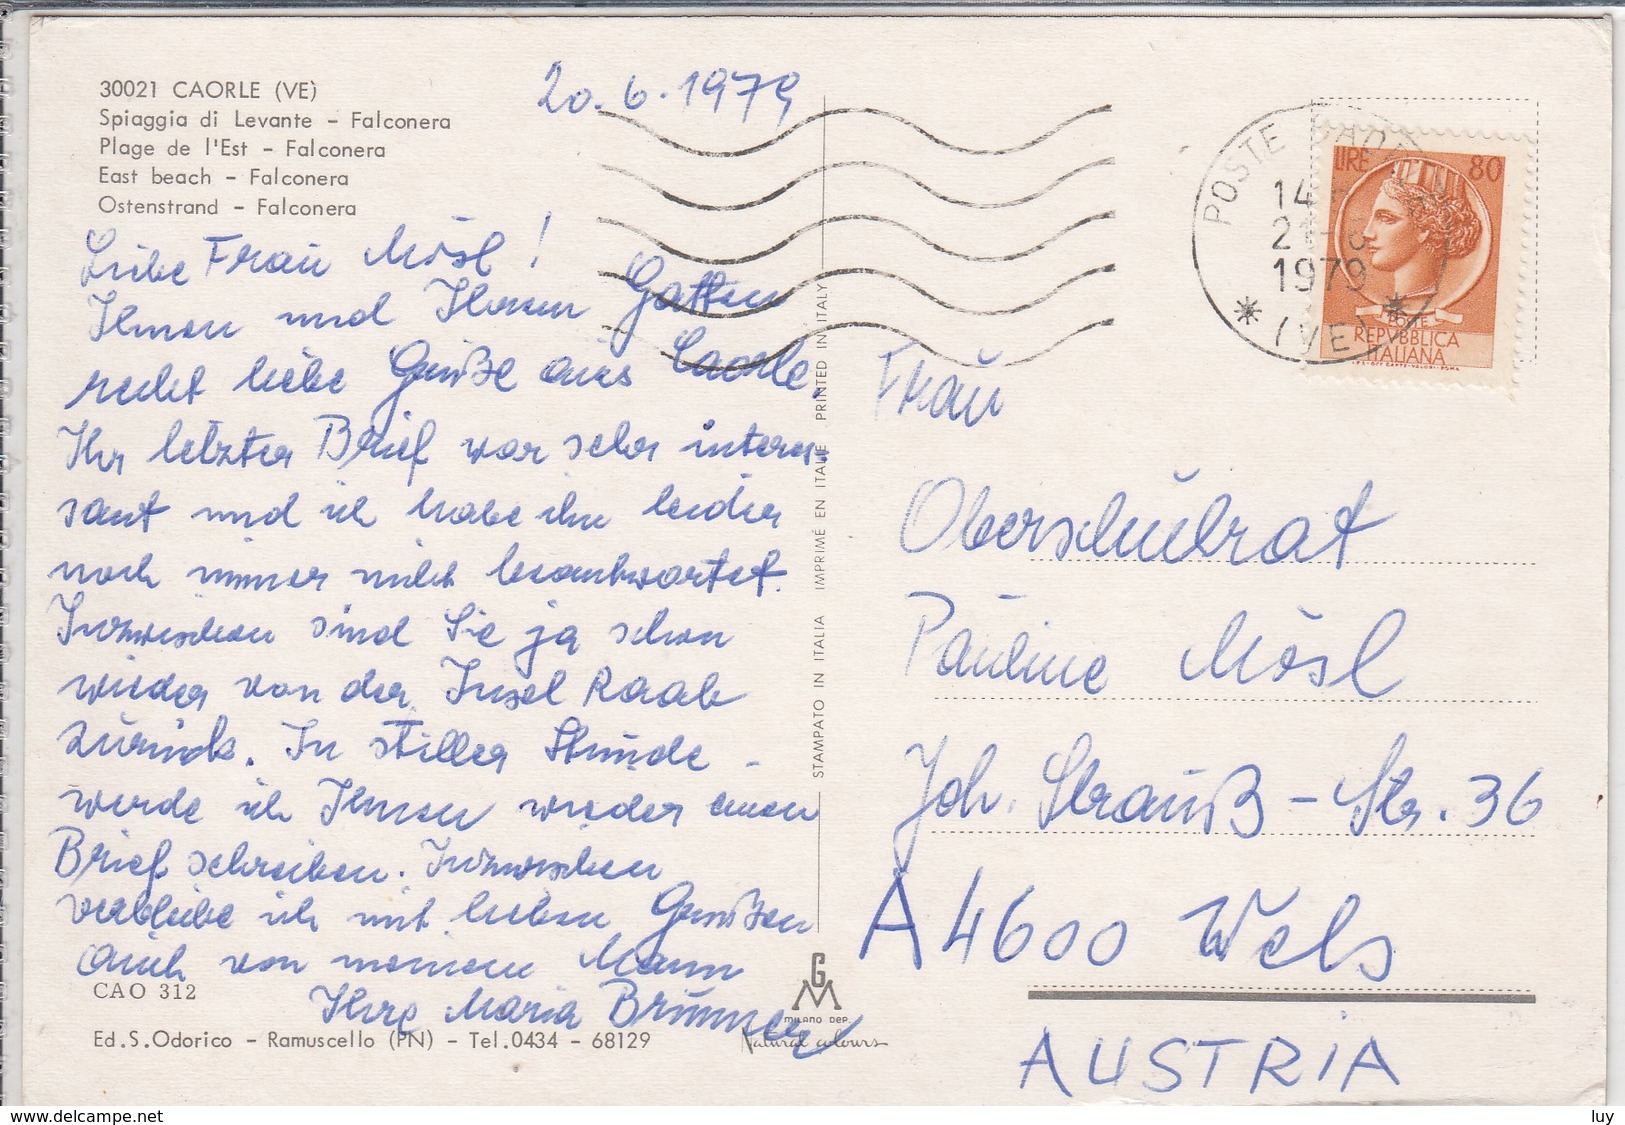 30021 CAORLE (VE)
Spiaggia di Levante - Falconera
Plage de l'Est - Falconera
East beach - Falconera
Ostenstrand - Falconera
20.6.1979
Liebe Frau Mösl!
Ihnen und Ihrem Gatten
recht liebe Grüße aus Caorle.
Ihr letzter Brief war sehr interes=
sant und ich habe ihn leider
noch immer nicht beantwortet.
Inzwischen sind Sie ja schon
wieder von der Insel Raab
zurück. In stiller Stunde
werde ich Ihnen wieder einen
Brief schreiben. Inzwischen
verbleibe ich mit lieben Grüßen
auch von meinem Mann
Ihre Maria Brunner
CAO 312
Ed.S.Odorico - Ramuscello (PN) - Tel.0434 - 68129
STAMPATO IN ITALIA IMPRIMÉ EN ITALIE PRINTED IN ITALY
GM
MILANO DEP.
Natural colours
POSTE
14
21-6
1979
(VE)
LIRE 80
POSTE
REPVBBLICA
ITALIANA
Frau
Oberschulrat
Pauline Mösl
Joh. Strauß-Str. 36
A 4600 Wels
AUSTRIA
www.delcampe.net
luy